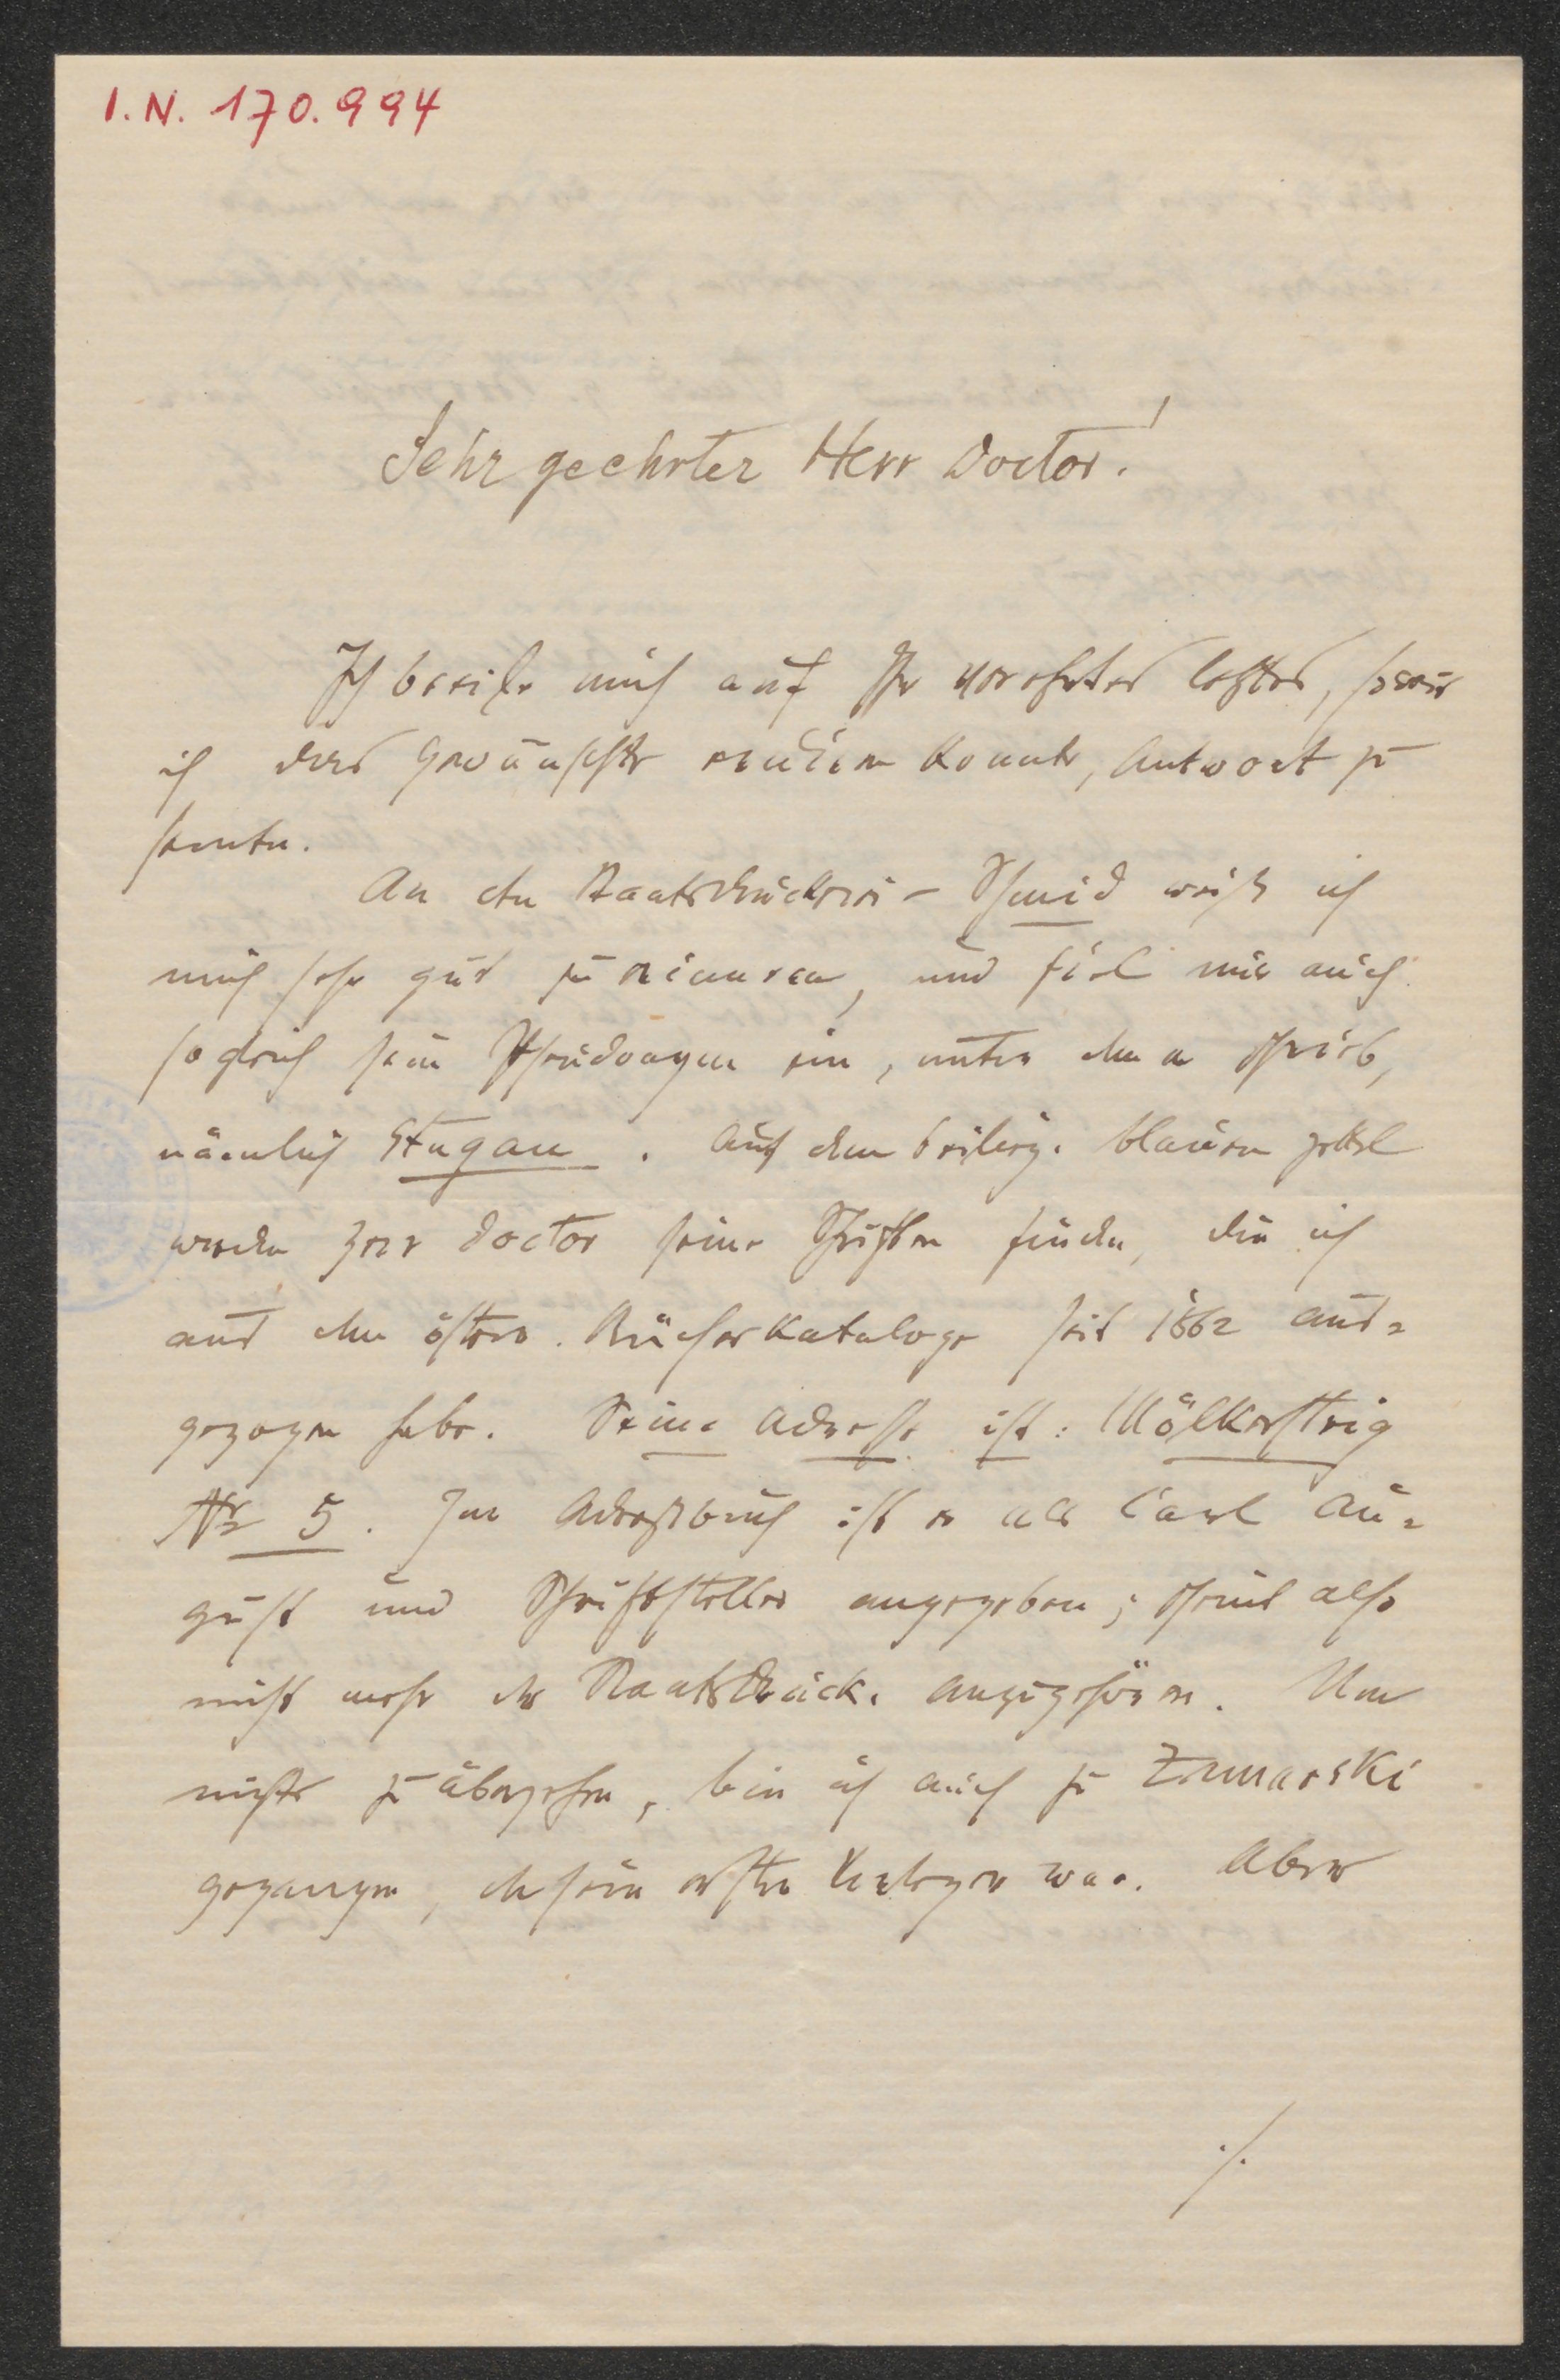 I.N. 170.994
Sehr geehrter Herr Doctor!
Ich beeile mich auf Ihr verehrtes letztes, soweit
ich das Gewünschte eruiren konnte, Antwort zu
senden.
An den Staatsdruckerei-Schmid weiß ich
mich sehr gut zu erinnern, und fiel mir auch
sogleich sein Pseudonym ein, unter dem er schrieb,
nämlich Stugau. Auf dem beilieg. blauen Zettel
werden Herr Doctor seine Schriften finden, die ich
aus dem österr. Bücherkataloge seit 1862 aus=
gezogen habe. Seine Adresse ist: Mölkersteig
Nr 5. Im Adreßbuch ist er als Carl Au=
gust und Schriftsteller angegeben; scheint also
nicht mehr der Staatsdruck. anzugehören. Um
nichts zu übergehen, bin ich auch zu Zamarski
gegangen, der sein erster Verleger war. Aber
./.